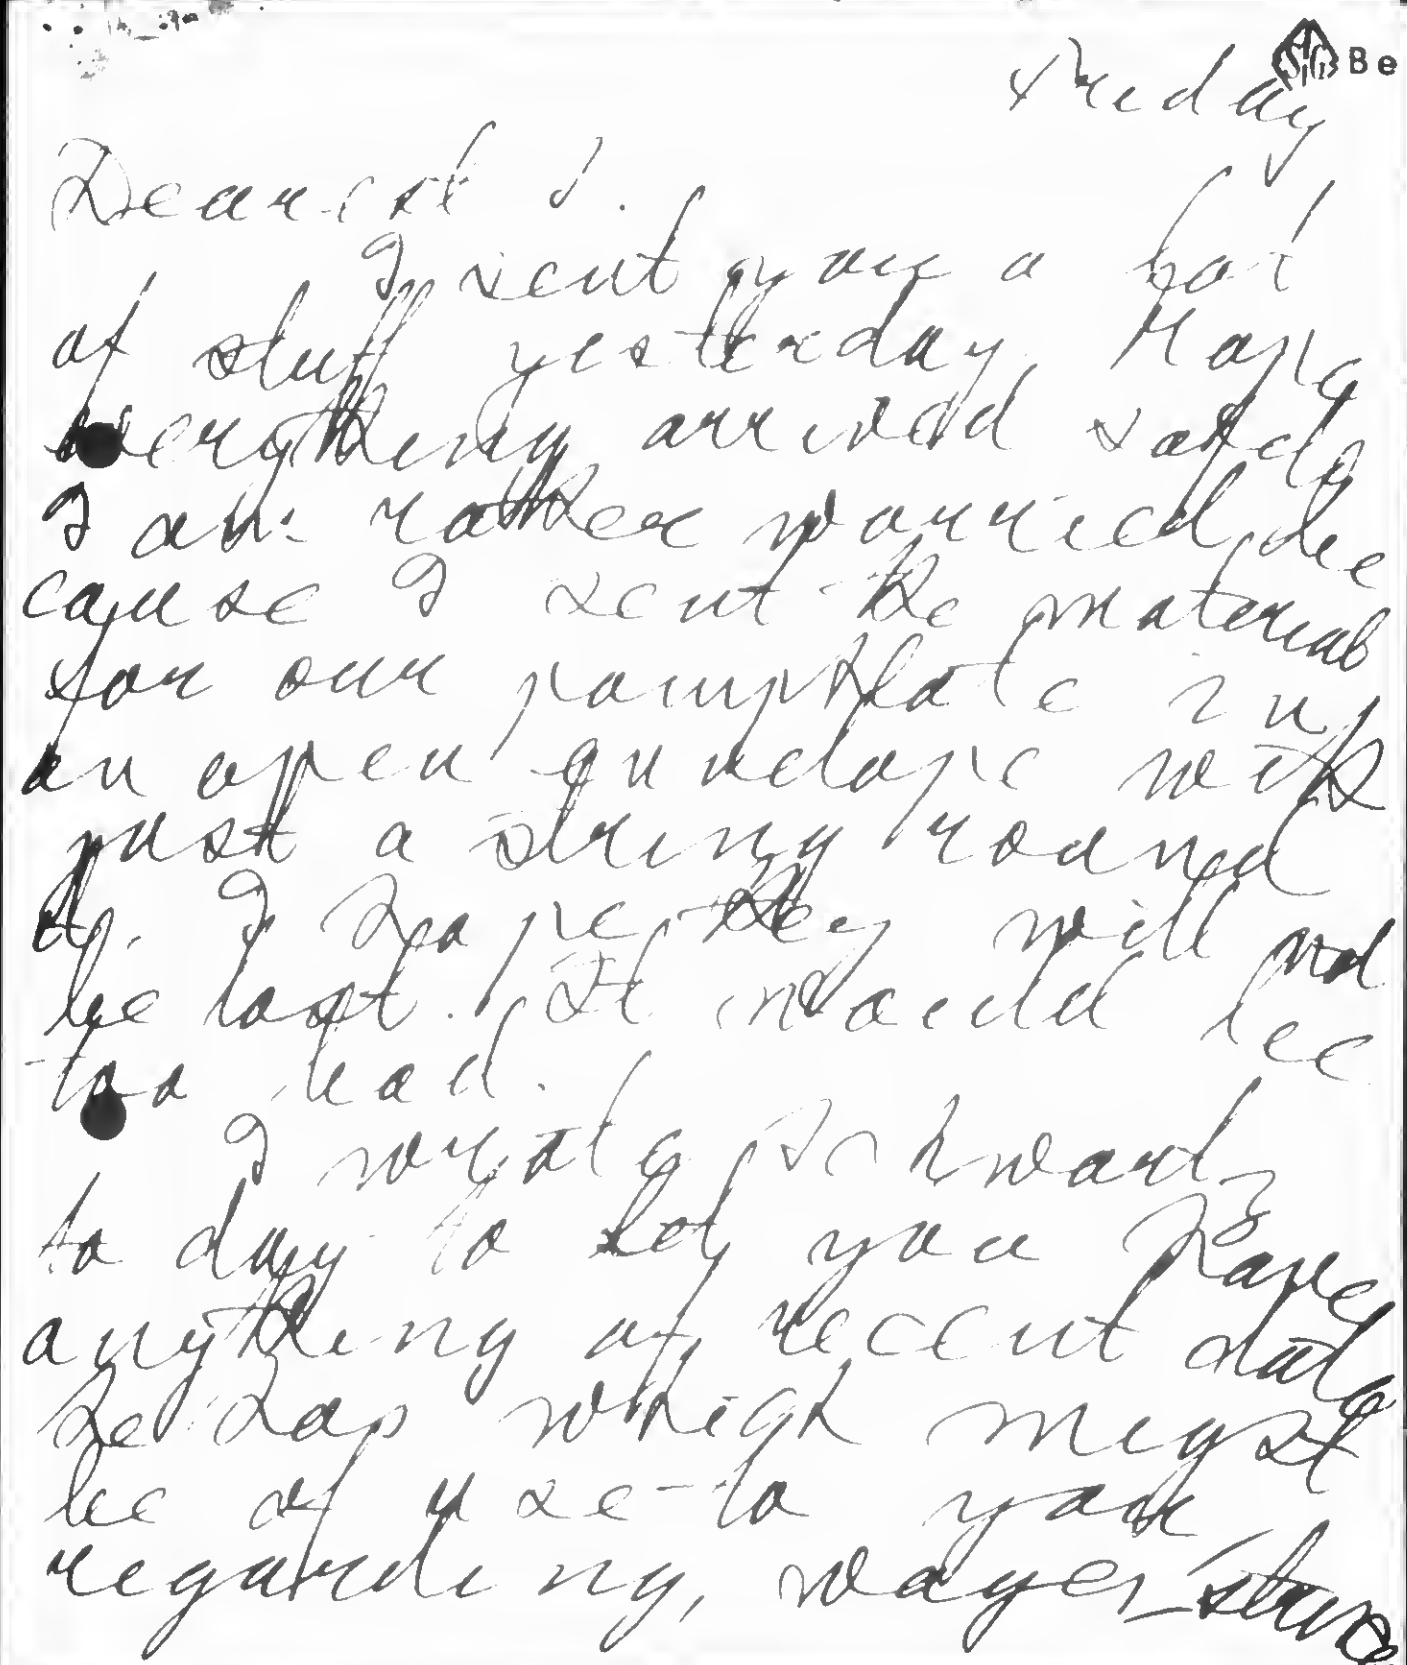 Friday
Be
Dearest S.
I sent you a lot
of stuff yesterday. Hope
everything arrived safely
I am rather worried be
cause I sent the material
for our pamphlete in
an open envelope with
just a string round
it. I hope they will not
be lost. It would be
too bad.
I wrote Schwartz
to day to let you have
anything of recent date
he has which might
be of use to you
regarding, wages,